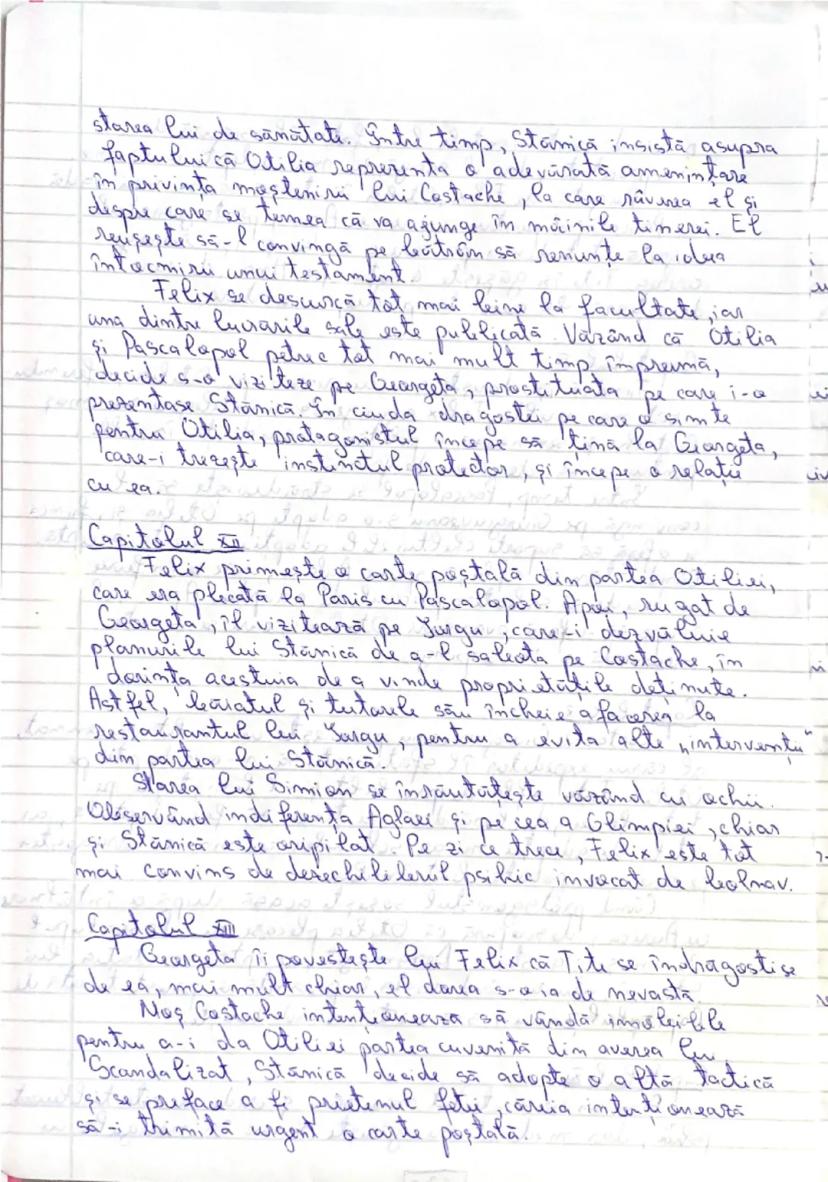 starea lui de sănătate. Între timp, Stănică insistă asupra
faptului că Otilia reprezenta o adevărată amenințare
în privința moștenirii lui Costache, la care râvnea el și
despre care se temea că va ajunge în mâinile tinerei. El
reușește să-l convingă pe bătrân să renunțe la ideea
întocmirii unui testament.
Felix se descurcă tot mai bine la facultate, iar
una dintre lucrările sale este publicată. Văzând că Otilia
și Pascalopol petrec tot mai mult timp împreună,
decide s-o viziteze pe Georgeta, prostituata pe care i-o
prezentase Stănică. În ciuda dragostei pe care o simte
pentru Otilia, protagonistul începe să țină la Georgeta,
care-i trezește instinctul protector, și începe o relație
cu ea.
Capitolul XII
Felix primește o carte poștală din partea Otiliei,
care era plecată la Paris cu Pascalopol. Apoi, rugat de
Georgeta, îl vizitează pe Iorgu, care-i dezvăluie
planurile lui Stănică de a-l sabota pe Costache, în
dorința acestuia de a vinde proprietățile deținute.
Astfel, băiatul și tutorele său încheie afacerea la
restaurantul lui Iorgu, pentru a evita alte „intervenții"
din partea lui Stănică.
Starea lui Simion se înrăutățește văzând cu ochii.
Observând indiferența Aglaei și pe cea a Olimpiei, chiar
și Stănică este oripilat. Pe zi ce trece, Felix este tot
mai convins de dezechilibrul psihic invocat de bolnav.
Capitolul XIII
Georgeta îi povestește lui Felix că Titi se îndrăgostise
de ea, mai mult chiar, el dorea s-o ia de nevastă.
Moș Costache intenționează să vândă imobilele
pentru a-i da Otiliei partea cuvenită din averea lui.
Scandalizat, Stănică decide să adopte o altă tactică
și se preface a fi prietenul fetei, căreia intenționează
să-i trimită urgent o carte poștală.